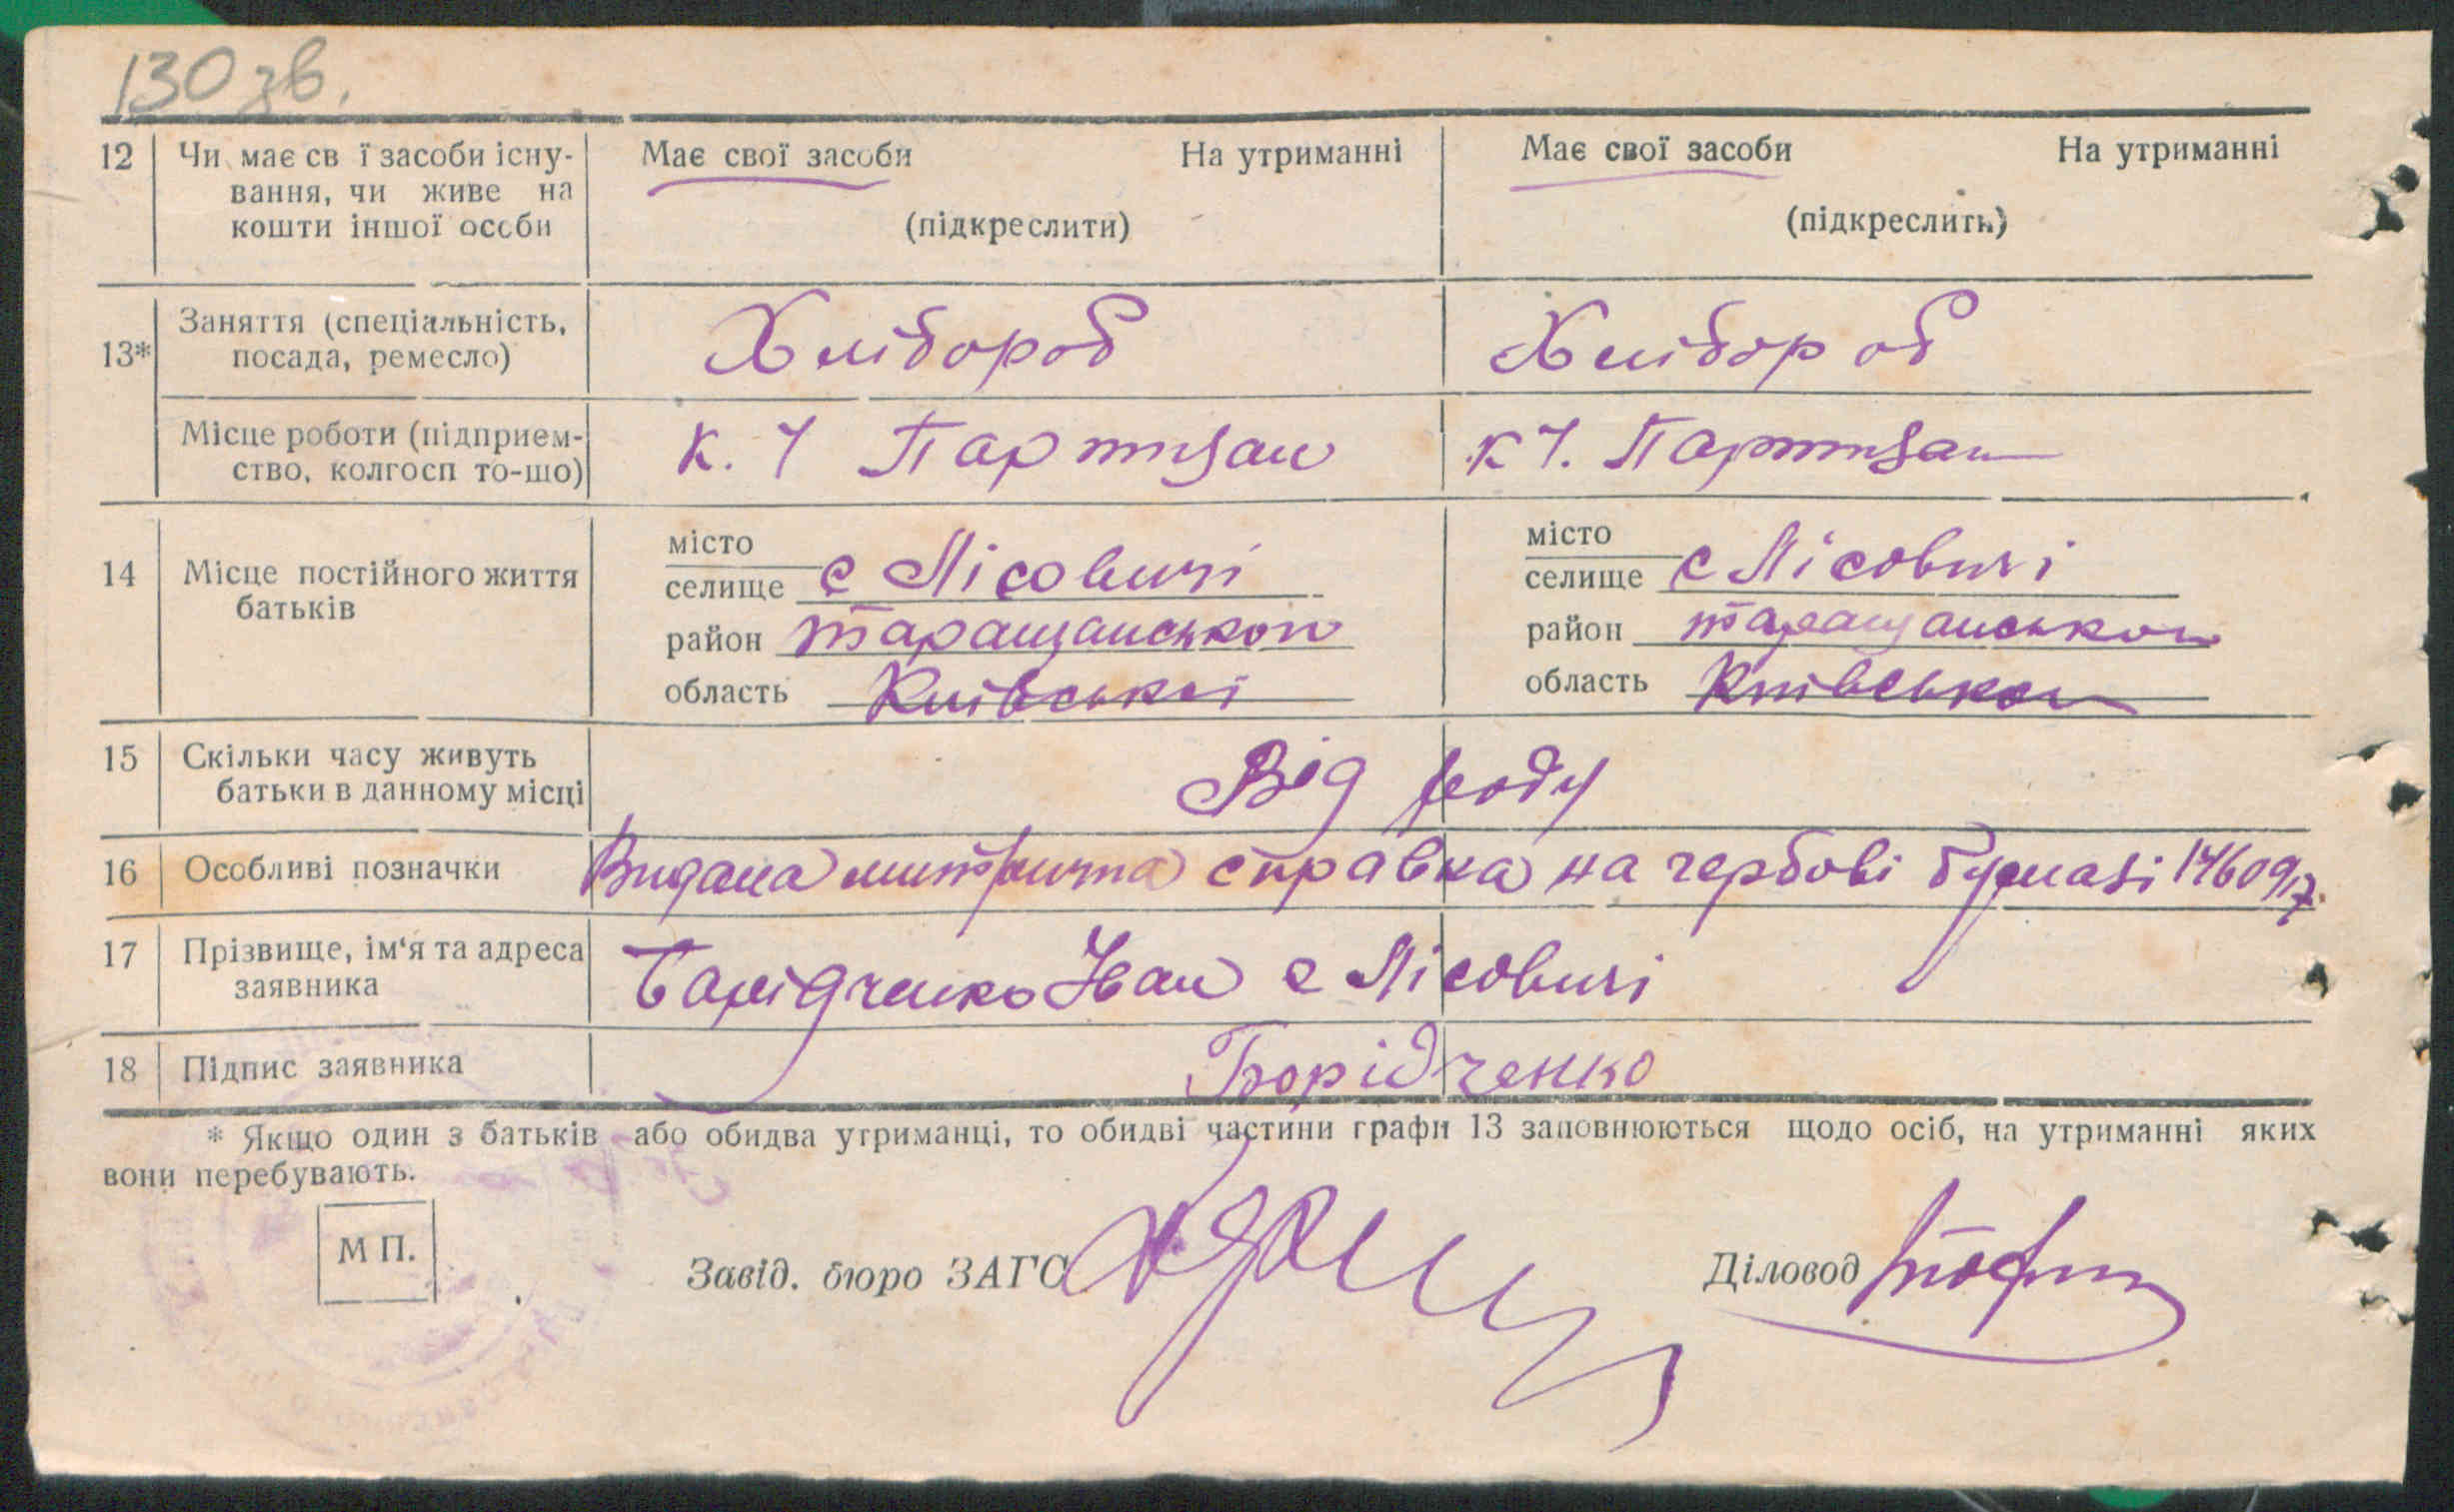 130 зв.
12 Чи має св ї засоби існу- Має свої засоби На утриманні Має свої засоби На утриманні
вання, чи живе на
кошти іншої особи (підкреслити) (підкреслить)
13* Заняття (спеціальність, Хлібороб Хлібороб
посада, ремесло)
Місце роботи (підприем- К. Ч Партизан К Ч. Партизан
ство, колгосп то-що)
14 Місце постійного життя місто місто
батьків селище с Лісовичі селище с Лісовичі
район таращанського район таращанського
область Київської область Київської
15 Скільки часу живуть Від роду
батьки в данному місці
16 Особливі позначки Видана метрична справка на гербові бумазі 146097.
17 Прізвище, ім'я та адреса Борідченко Іван с Лісовичі
заявника
18 Підпис заявника Борідченко
* Якщо один з батьків або обидва утриманці, то обидві частини графи 13 заповнюються щодо осіб, на утриманні яких
вони перебувають.
М П.
Завід. бюро ЗАГС Діловод